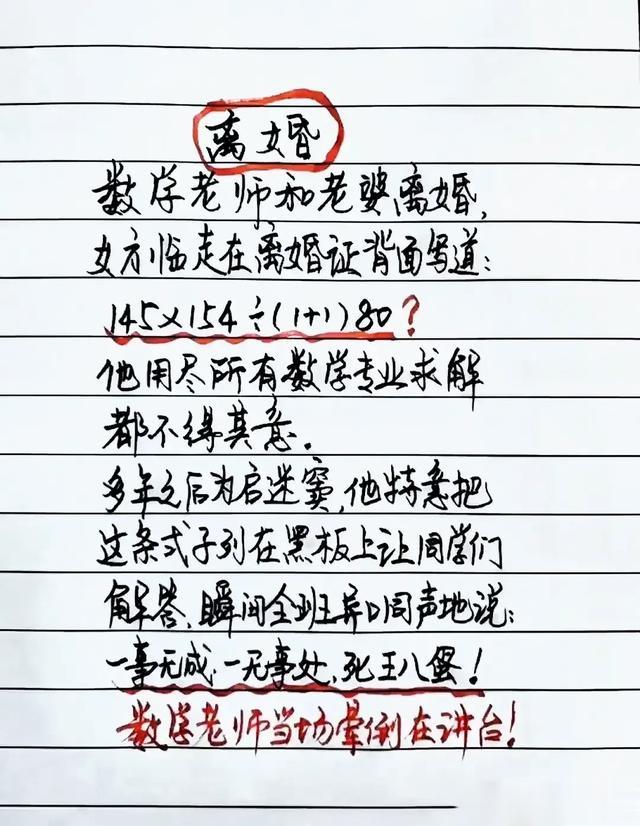 离婚
数学老师和老婆离婚,
女方临走在离婚证背面写道:
145×154÷(1+1)80?
他用尽所有数学专业求解
都不得其意.
多年之后为启迷窦,他特意把
这条式子列在黑板上让同学们
解答,瞬间全班异口同声地说:
一事无成.一无事处,死王八蛋!
数学老师当场晕倒在讲台!